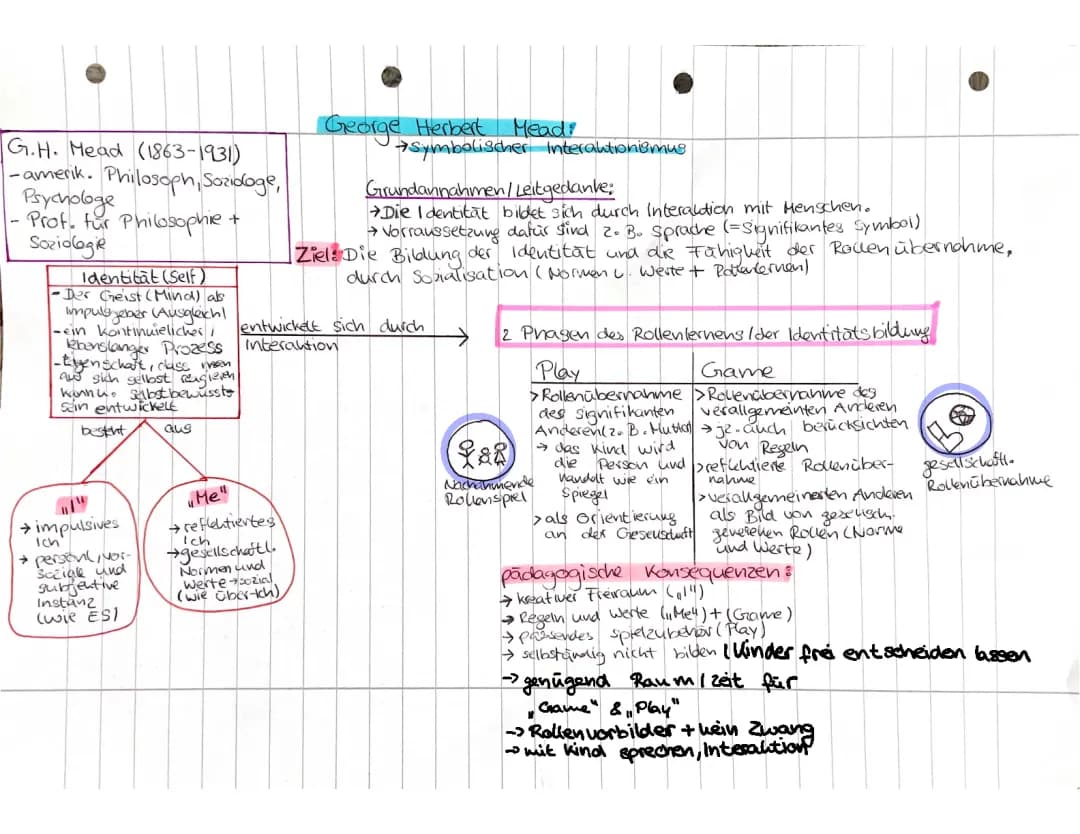 George Herbert Mead:
→ Symbolischer Interaktionismus
G.H. Mead (1863-1931)
- amerik. Philosoph, Soziologe,
Psychologe
- Prof. für Philosophie +
Soziologie
Grundannahmen/Leitgedanke:
→ Die Identität bildet sich durch Interaktion mit Menschen.
→ Vorraussetzung dafür sind z.B. Sprache (=Signifikantes Symbol)
Ziel: Die Bildung der Identität und die Fähigkeit der Rollenübernahme,
durch Sozialisation (Normen u. Werte +
Identität (Self)
- Der Geist (Mind) als
Impulsgeber (Ausgleich)
- ein kontinuielicher,
lebenslanger Prozess
- Eigenschaft, dass man
auf sich selbst reagieren
kann u. selbstbewusst-
sein entwickelt
entwickelt sich durch
Interaktion
besteht aus
"I"
→ impulsives
Ich
→ persönl., vor-
soziale und
subjektive
Instanz
(wie ES)
"Me"
→ reflektiertes
Ich
→ gesellschaftl.
Normen und
Werte → sozial
(wie Über-Ich)
2 Phasen des Rollenlernens/der Identitätsbildung
Play
> Rollenübernahme
des signifikanten
Anderen (z.B. Mutter)
→ das Kind wird
die Person und
handelt wie ein
Spiegel
> als Orientierung
an der Gesellschaft
Nachahmende
Rollenspiel
Game
> Rollenübernahme des
verallgemeinten Anderen
→ jz. auch berücksichten
von Regeln
> reflektierte Rollenüber-
nahme
> verallgemeinerten Anderen
als Bild von gesellsch.
Rollen (Norme
und Werte)
gesellschaftl.
Rollenübernahme
pädagogische Konsequenzen:
→ kreativer Freiraum ("I")
→ Regeln und Werte ("Me") + (Game)
→ passendes Spielzubehör (Play)
→ selbständig nicht bilden (Kinder frei entscheiden lassen
→ genügend Raum/zeit für
"Game" & "Play"
→ Rollenvorbilder + kein Zwang
→ mit Kind sprechen, Interaktion